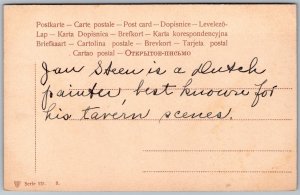 Postkarte - Carte postale - Post card - Dopisnice - Levelező-
Lap - Karta Dopisnice - Brefkort - Karta korespondencyjna
Briefkaart - Cartolina postale - Brevkort - Tarjeta postal
Cartao postal - ОТКРЫТОЕ-ПИСЬМО
Jan Steen is a Dutch
painter best known for
his tavern scenes.
Serie